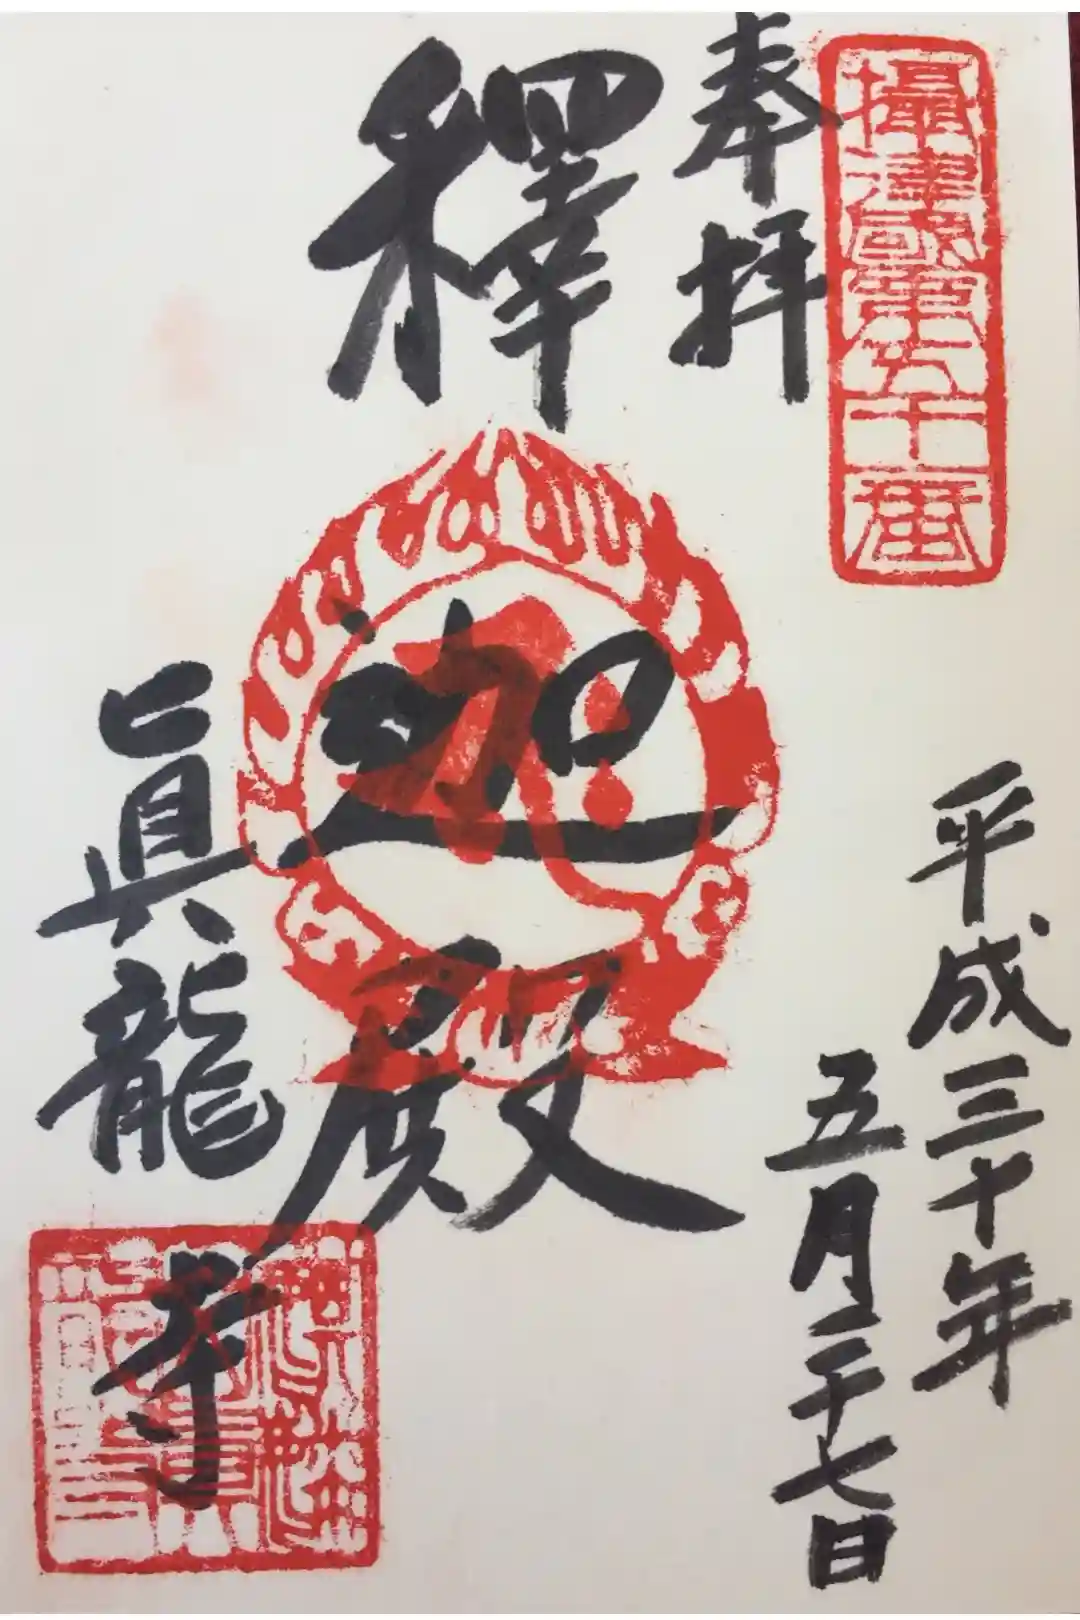 攝津國第五十番
奉拝
平成三十年
五月二十七日
釋迦殿
眞龍寺